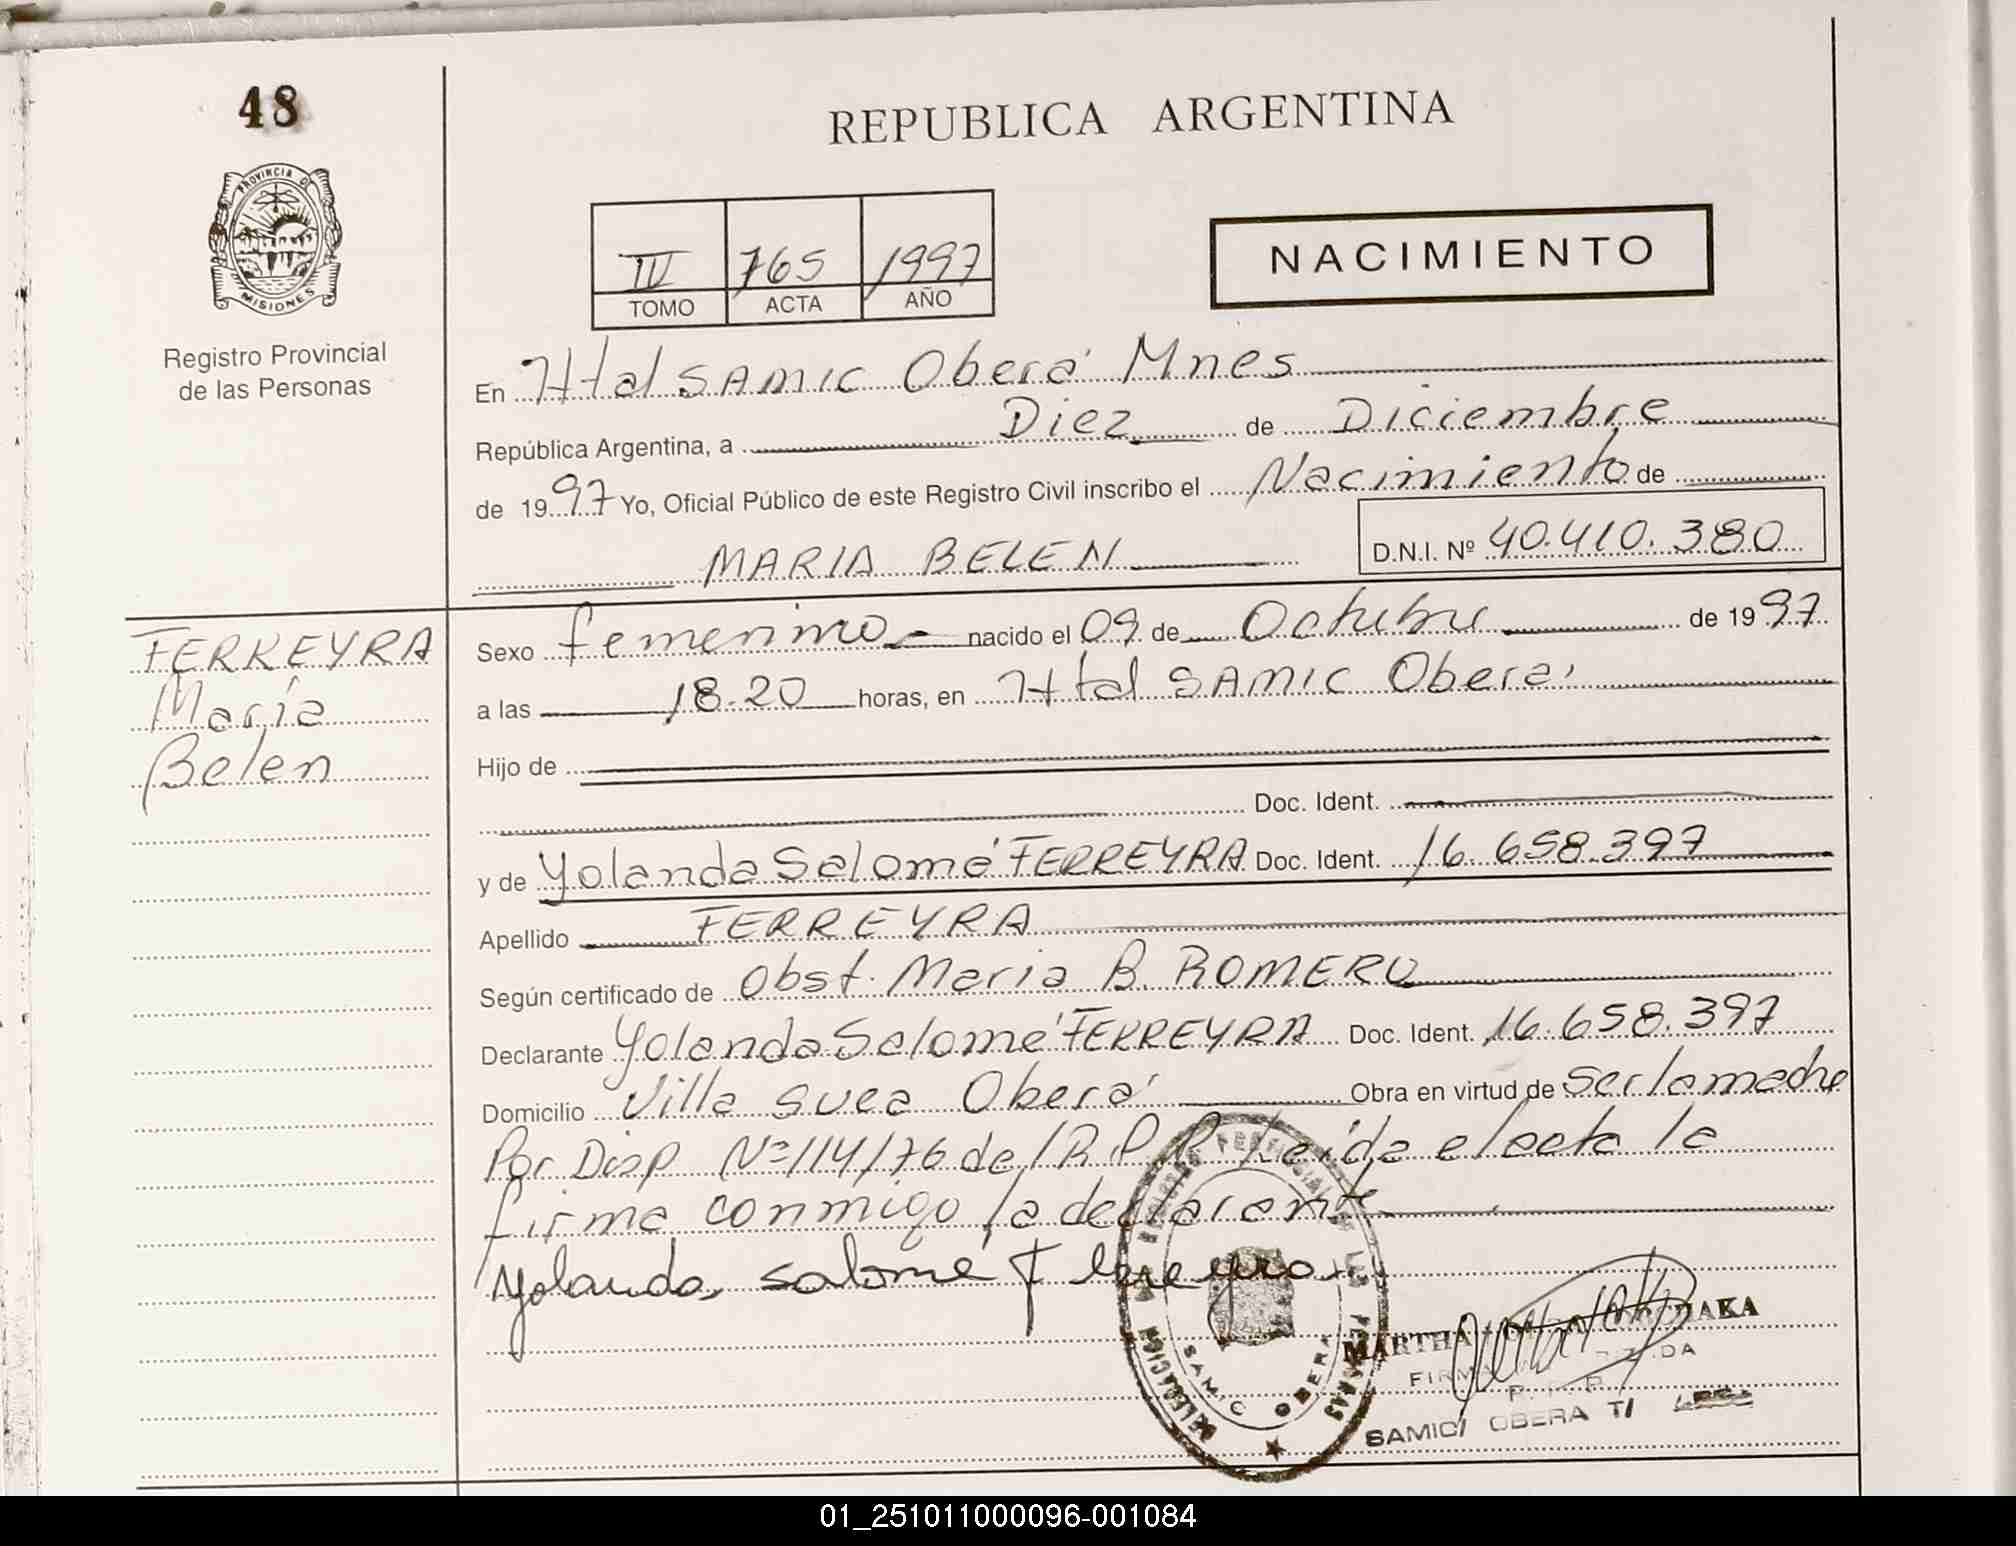 48
REPUBLICA ARGENTINA
PROVINCIA D
MISIONES
Registro Provincial
de las Personas
IV 765 1997
TOMO ACTA AÑO
NACIMIENTO
En Htal SAMIC Oberá Mnes
República Argentina, a Diez de Diciembre
de 1997 Yo, Oficial Público de este Registro Civil inscribo el Nacimiento de
MARIA BELEN D.N.I. Nº 40.410.380
FERREYRA
María
Belen
Sexo femenino nacido el 09 de Octubre de 1997
a las 18.20 horas, en Htal SAMIC Oberá
Hijo de
Doc. Ident.
y de Yolanda Salomé FERREYRA Doc. Ident. 16.658.397
Apellido FERREYRA
Según certificado de Obst. Maria B. ROMERO
Declarante Yolanda Salomé FERREYRA Doc. Ident. 16.658.397
Domicilio Villa Svea Oberá Obra en virtud de ser la madre
Por Disp Nº 114/76 del R.P.P. Leída el acta la
firma conmigo la declarante
Yolanda salome Ferreyra
DELEGACION REGISTRO PROVINCIAL DE LAS PERSONAS
SAMIC OBERA
MARTHA
P. R. P.
SAMIC/ OBERA T/
01_251011000096-001084